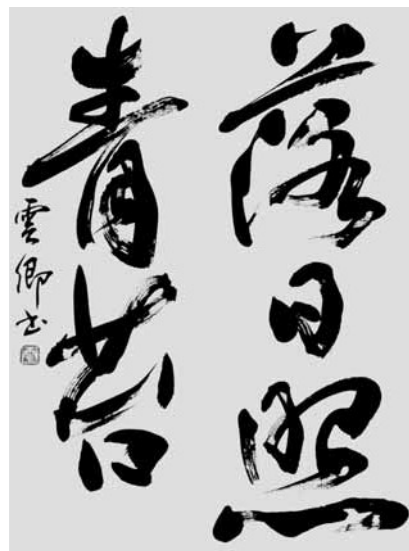 落日照
青苔
雲卿書